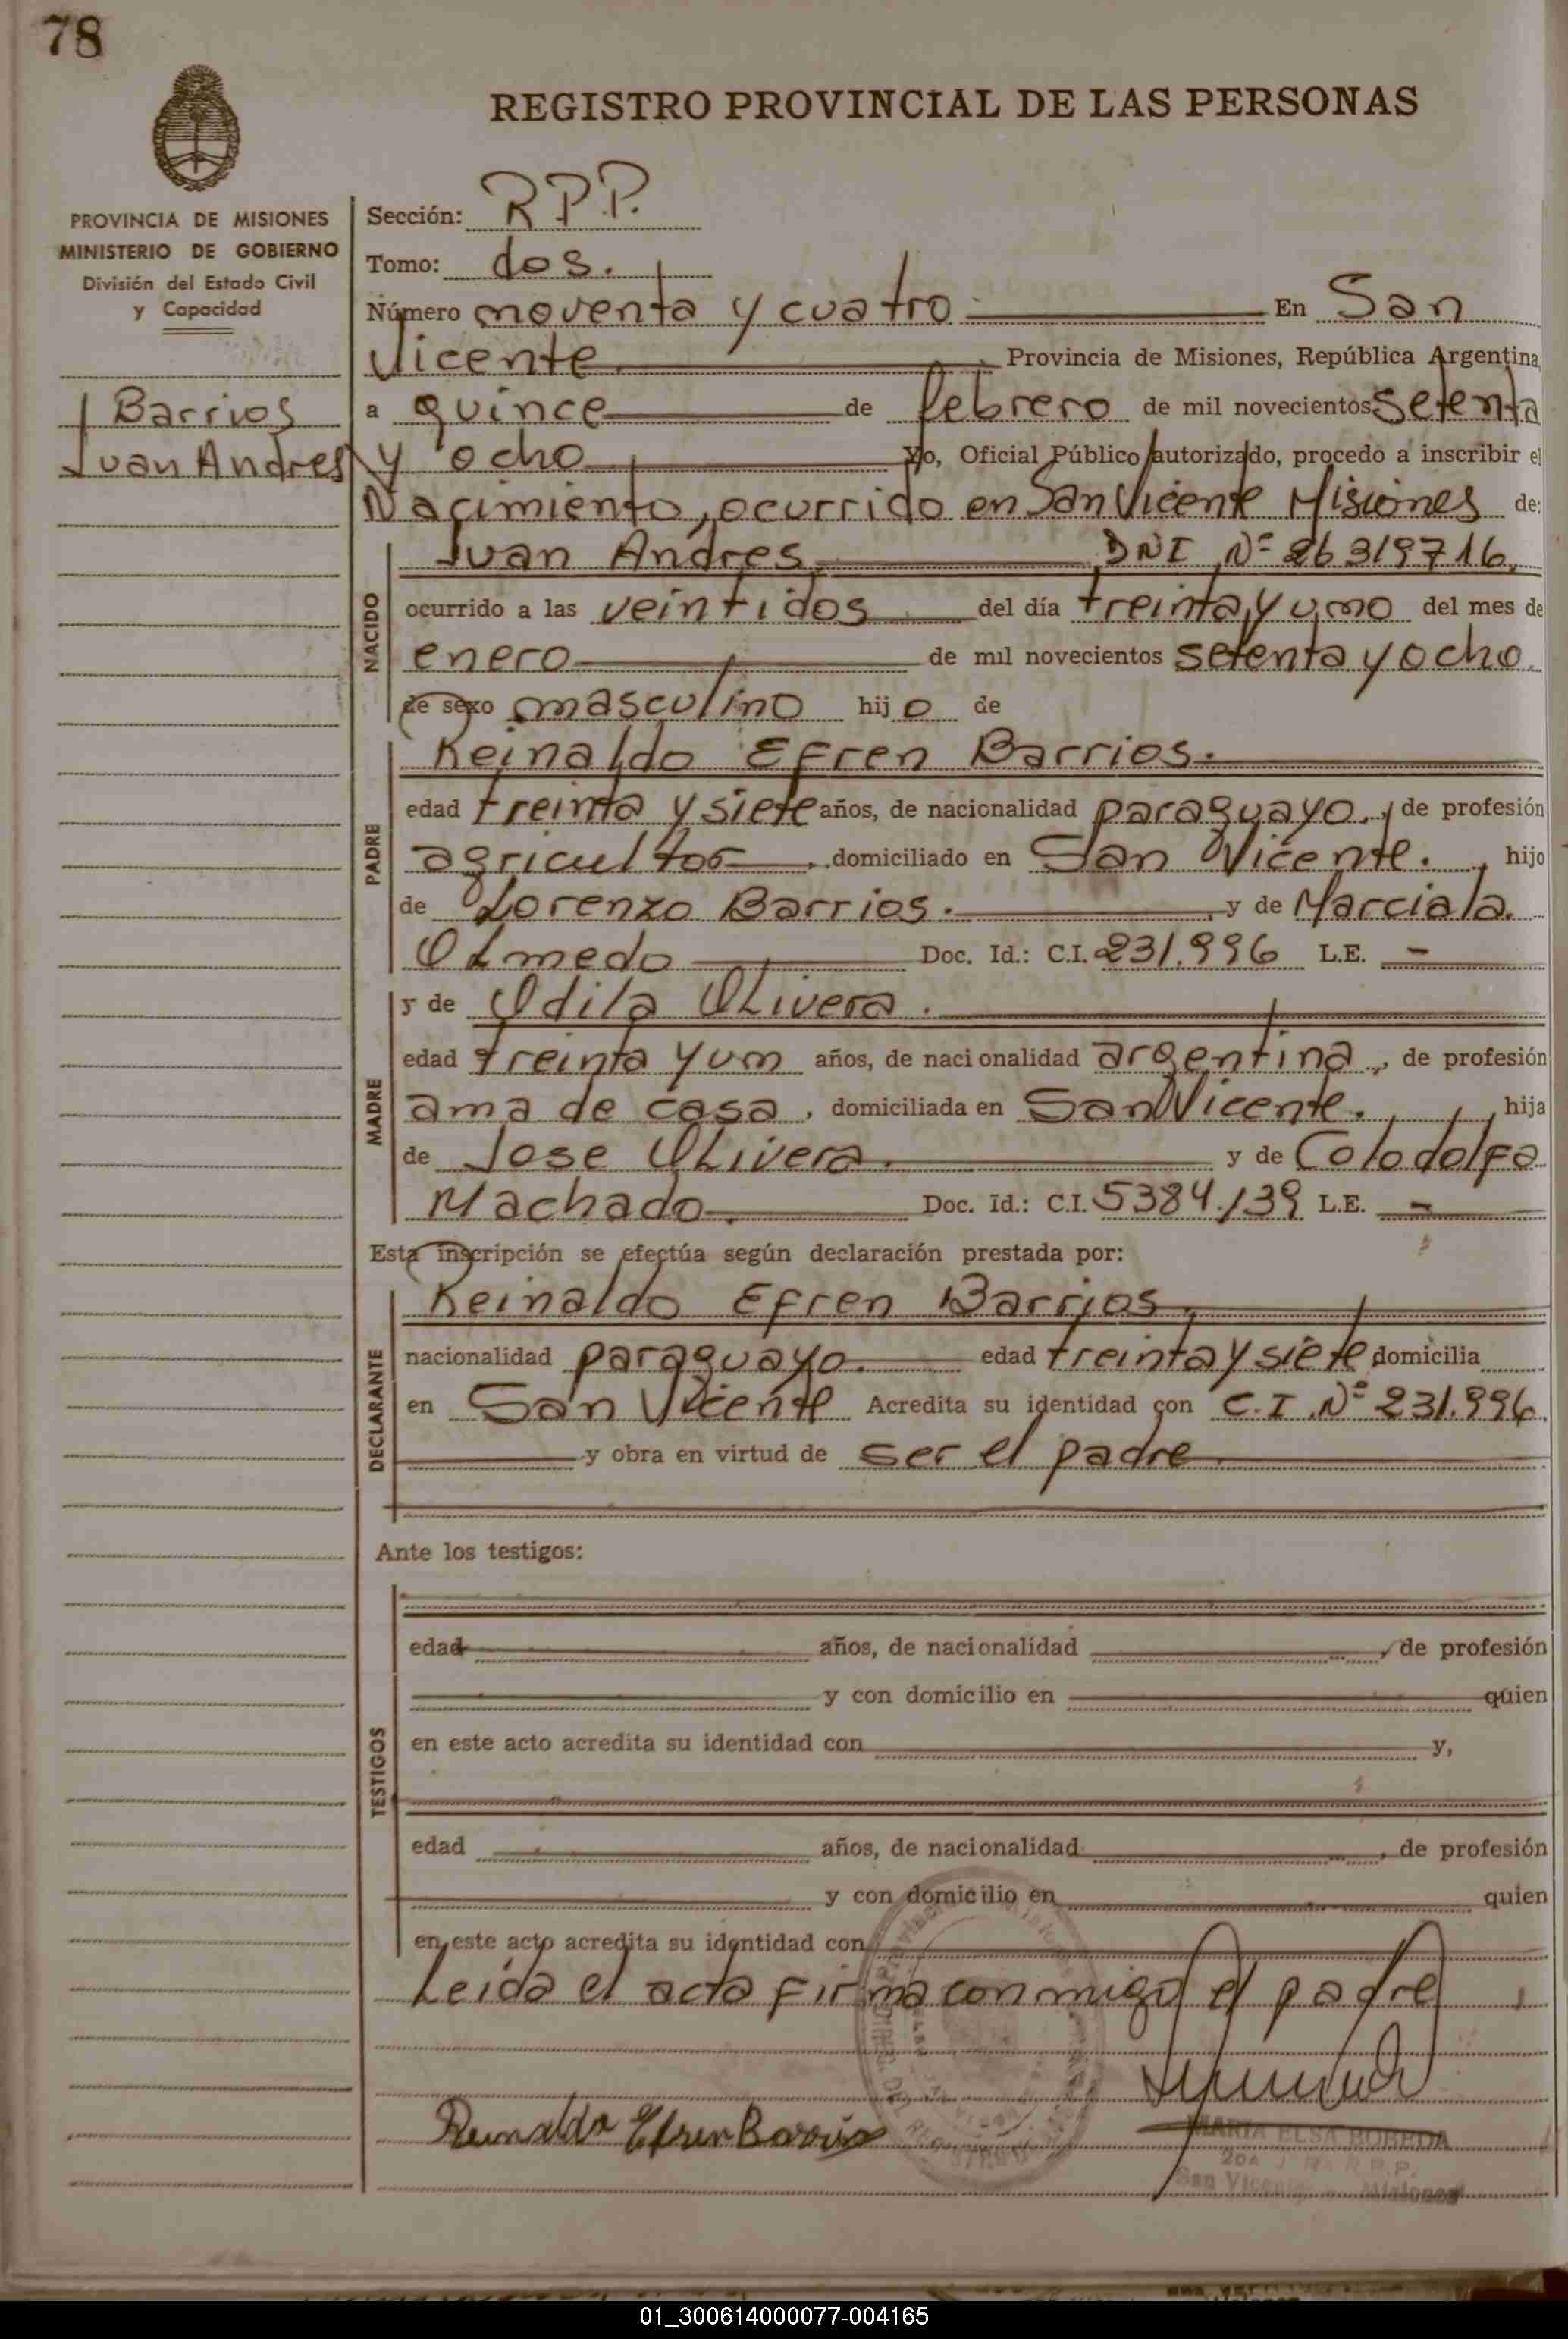 78
REGISTRO PROVINCIAL DE LAS PERSONAS
PROVINCIA DE MISIONES
MINISTERIO DE GOBIERNO
División del Estado Civil
y Capacidad
Barrios
Juan Andres
Sección: R.P.P.
Tomo: dos.
Número noventa y cuatro En San
Vicente Provincia de Misiones, República Argentina
a quince de febrero de mil novecientos setenta
y ocho Yo, Oficial Público autorizado, procedo a inscribir el
Nacimiento, ocurrido en San Vicente Misiones de:
NACIDO
Juan Andres DNI Nº 26319716.
ocurrido a las veintidos del día treinta y uno del mes de
enero de mil novecientos setenta y ocho.
de sexo masculino hijo de
PADRE
Reinaldo Efren Barrios.
edad treinta y siete años, de nacionalidad paraguayo, de profesión
agricultor, domiciliado en San Vicente. hijo
de Lorenzo Barrios. y de Marciala
Olmedo Doc. Id.: C.I. 231.996 L.E. -
MADRE
y de Odila Olivera.
edad treinta y un años, de nacionalidad argentina, de profesión
ama de casa, domiciliada en San Vicente. hija
de Jose Olivera y de Colodolfa
Machado. Doc. Id.: C.I. 5384.139 L.E. -
Esta inscripción se efectúa según declaración prestada por:
DECLARANTE
Reinaldo Efren Barrios,
nacionalidad paraguayo. edad treinta y siete domicilia
en San Vicente Acredita su identidad con C.I. Nº 231.996
y obra en virtud de ser el padre
Ante los testigos:
TESTIGOS
edad años, de nacionalidad, de profesión
y con domicilio en quien
en este acto acredita su identidad con y,
edad años, de nacionalidad, de profesión
y con domicilio en quien
en este acto acredita su identidad con
Leida el acta firma conmigo el padre
Reinaldo Efren Barrios
MARIA ELSA BOBEDA
San Vicente Misiones
01_300614000077-004165